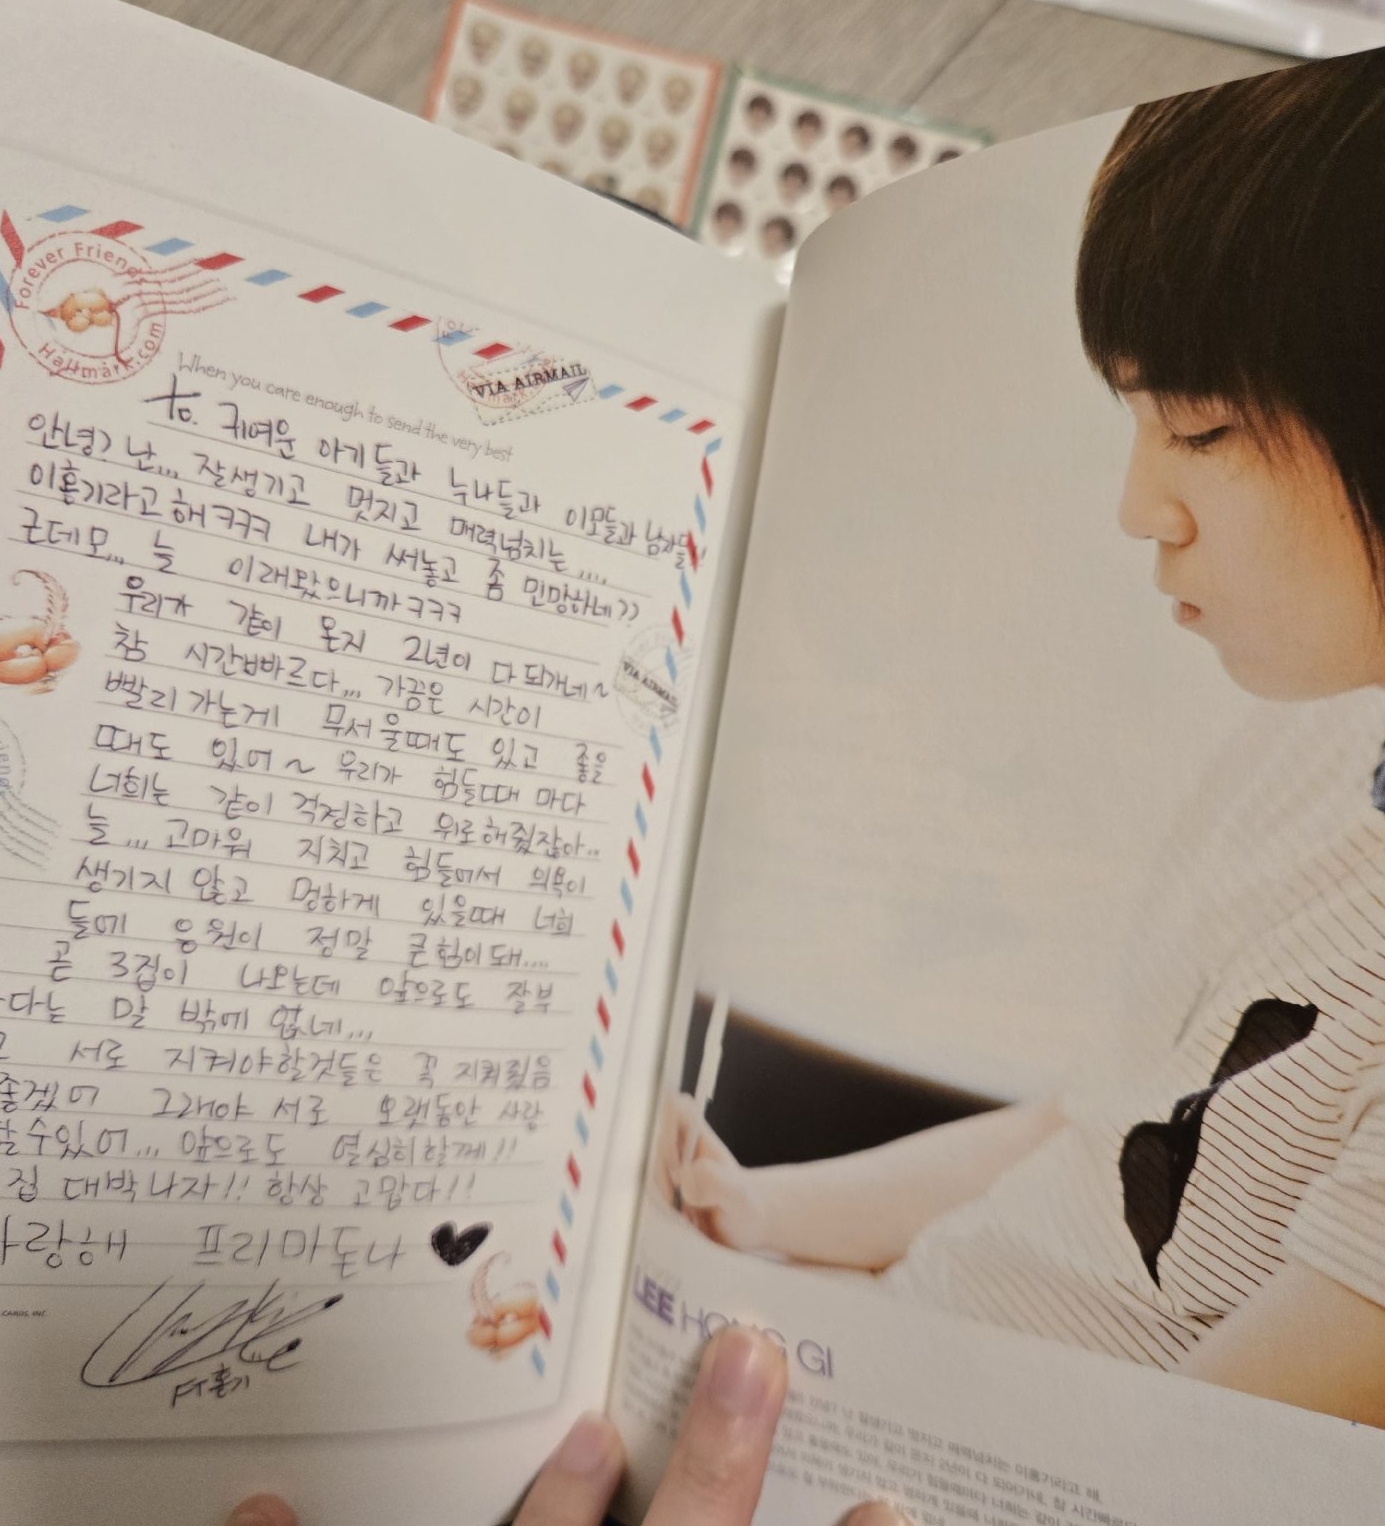 Forever Friends
Hallmark.com
VIA AIRMAIL
When you care enough to send the very best
to. 귀여운 아기들과 누나들과 이모들과 남자들!
안녕? 난... 잘생기고 멋지고 매력넘치는....
이홍기라고해 ㅋㅋㅋ 내가 써놓고 좀 민망하네??
근데모... 늘 이래왔으니까 ㅋㅋㅋ
우리가 같이 온지 2년이 다 되가네~
참 시간빠르다... 가끔은 시간이
빨리 가는게 무서울때도 있고 좋을
때도 있어~ 우리가 힘들때 마다
너희는 같이 걱정하고 위로해줬잖아..
늘... 고마워 지치고 힘들어서 의욕이
생기지 않고 멍하게 있을때 너희
들에 응원이 정말 큰힘이돼....
곧 3집이 나오는데 앞으로도 잘부
다는 말 밖에 없네...
서로 지켜야할것들은 꼭 지켜줬음
좋겠어 그래야 서로 오랫동안 사랑
할수있어... 앞으로도 열심히할께!!
집 대박나자!! 항상 고맙다!!
랑해 프리마돈나
VIA AIRMAIL
FT홍기
CARDS, INC.
LEE HONG GI
난 잘생기고 멋지고 매력넘치는 이홍기라고 해.
우리가 같이 온지 2년이 다 되어가네, 참 시간빠르다